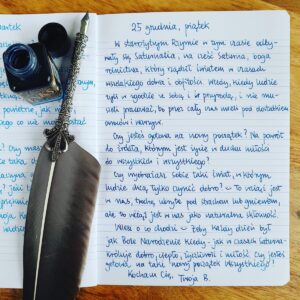 wartek
25 grudnia, piątek
W starożytnym Rzymie w tym czasie odby-
wały się Saturnalia, na cześć Saturna, boga
rolnictwa, który rządził światem w czasach
wszelakiego dobra i obfitości. Wtedy, kiedy ludzie
żyli w zgodzie ze sobą i z przyrodą, i nie mu-
sieli pracować, bo przez cały rok mieli pod dostatkiem
owoców i warzyw.
Czy jesteś gotowa na nowy początek? Na powrót
do świata, którym jest życie w duchu miłości
do wszystkich i wszystkiego?
Czy wyobrażasz sobie taki świat, w którym
ludzie chcą tylko czynić dobro? – To wciąż jest
w nas, trochę ukryte pod strachem lub gniewem,
ale to wciąż jest w nas jako naturalna skłonność.
Wiesz o co chodzi – Żeby każdy dzień był
jak Boże Narodzenie kiedyś – jak w czasach Saturna –
króluje dobro, ciepło, życzliwość i miłość. Czy jesteś
gotowa, na taki "nowy początek wszystkiego"?
Kocham Cię, Twoja B.